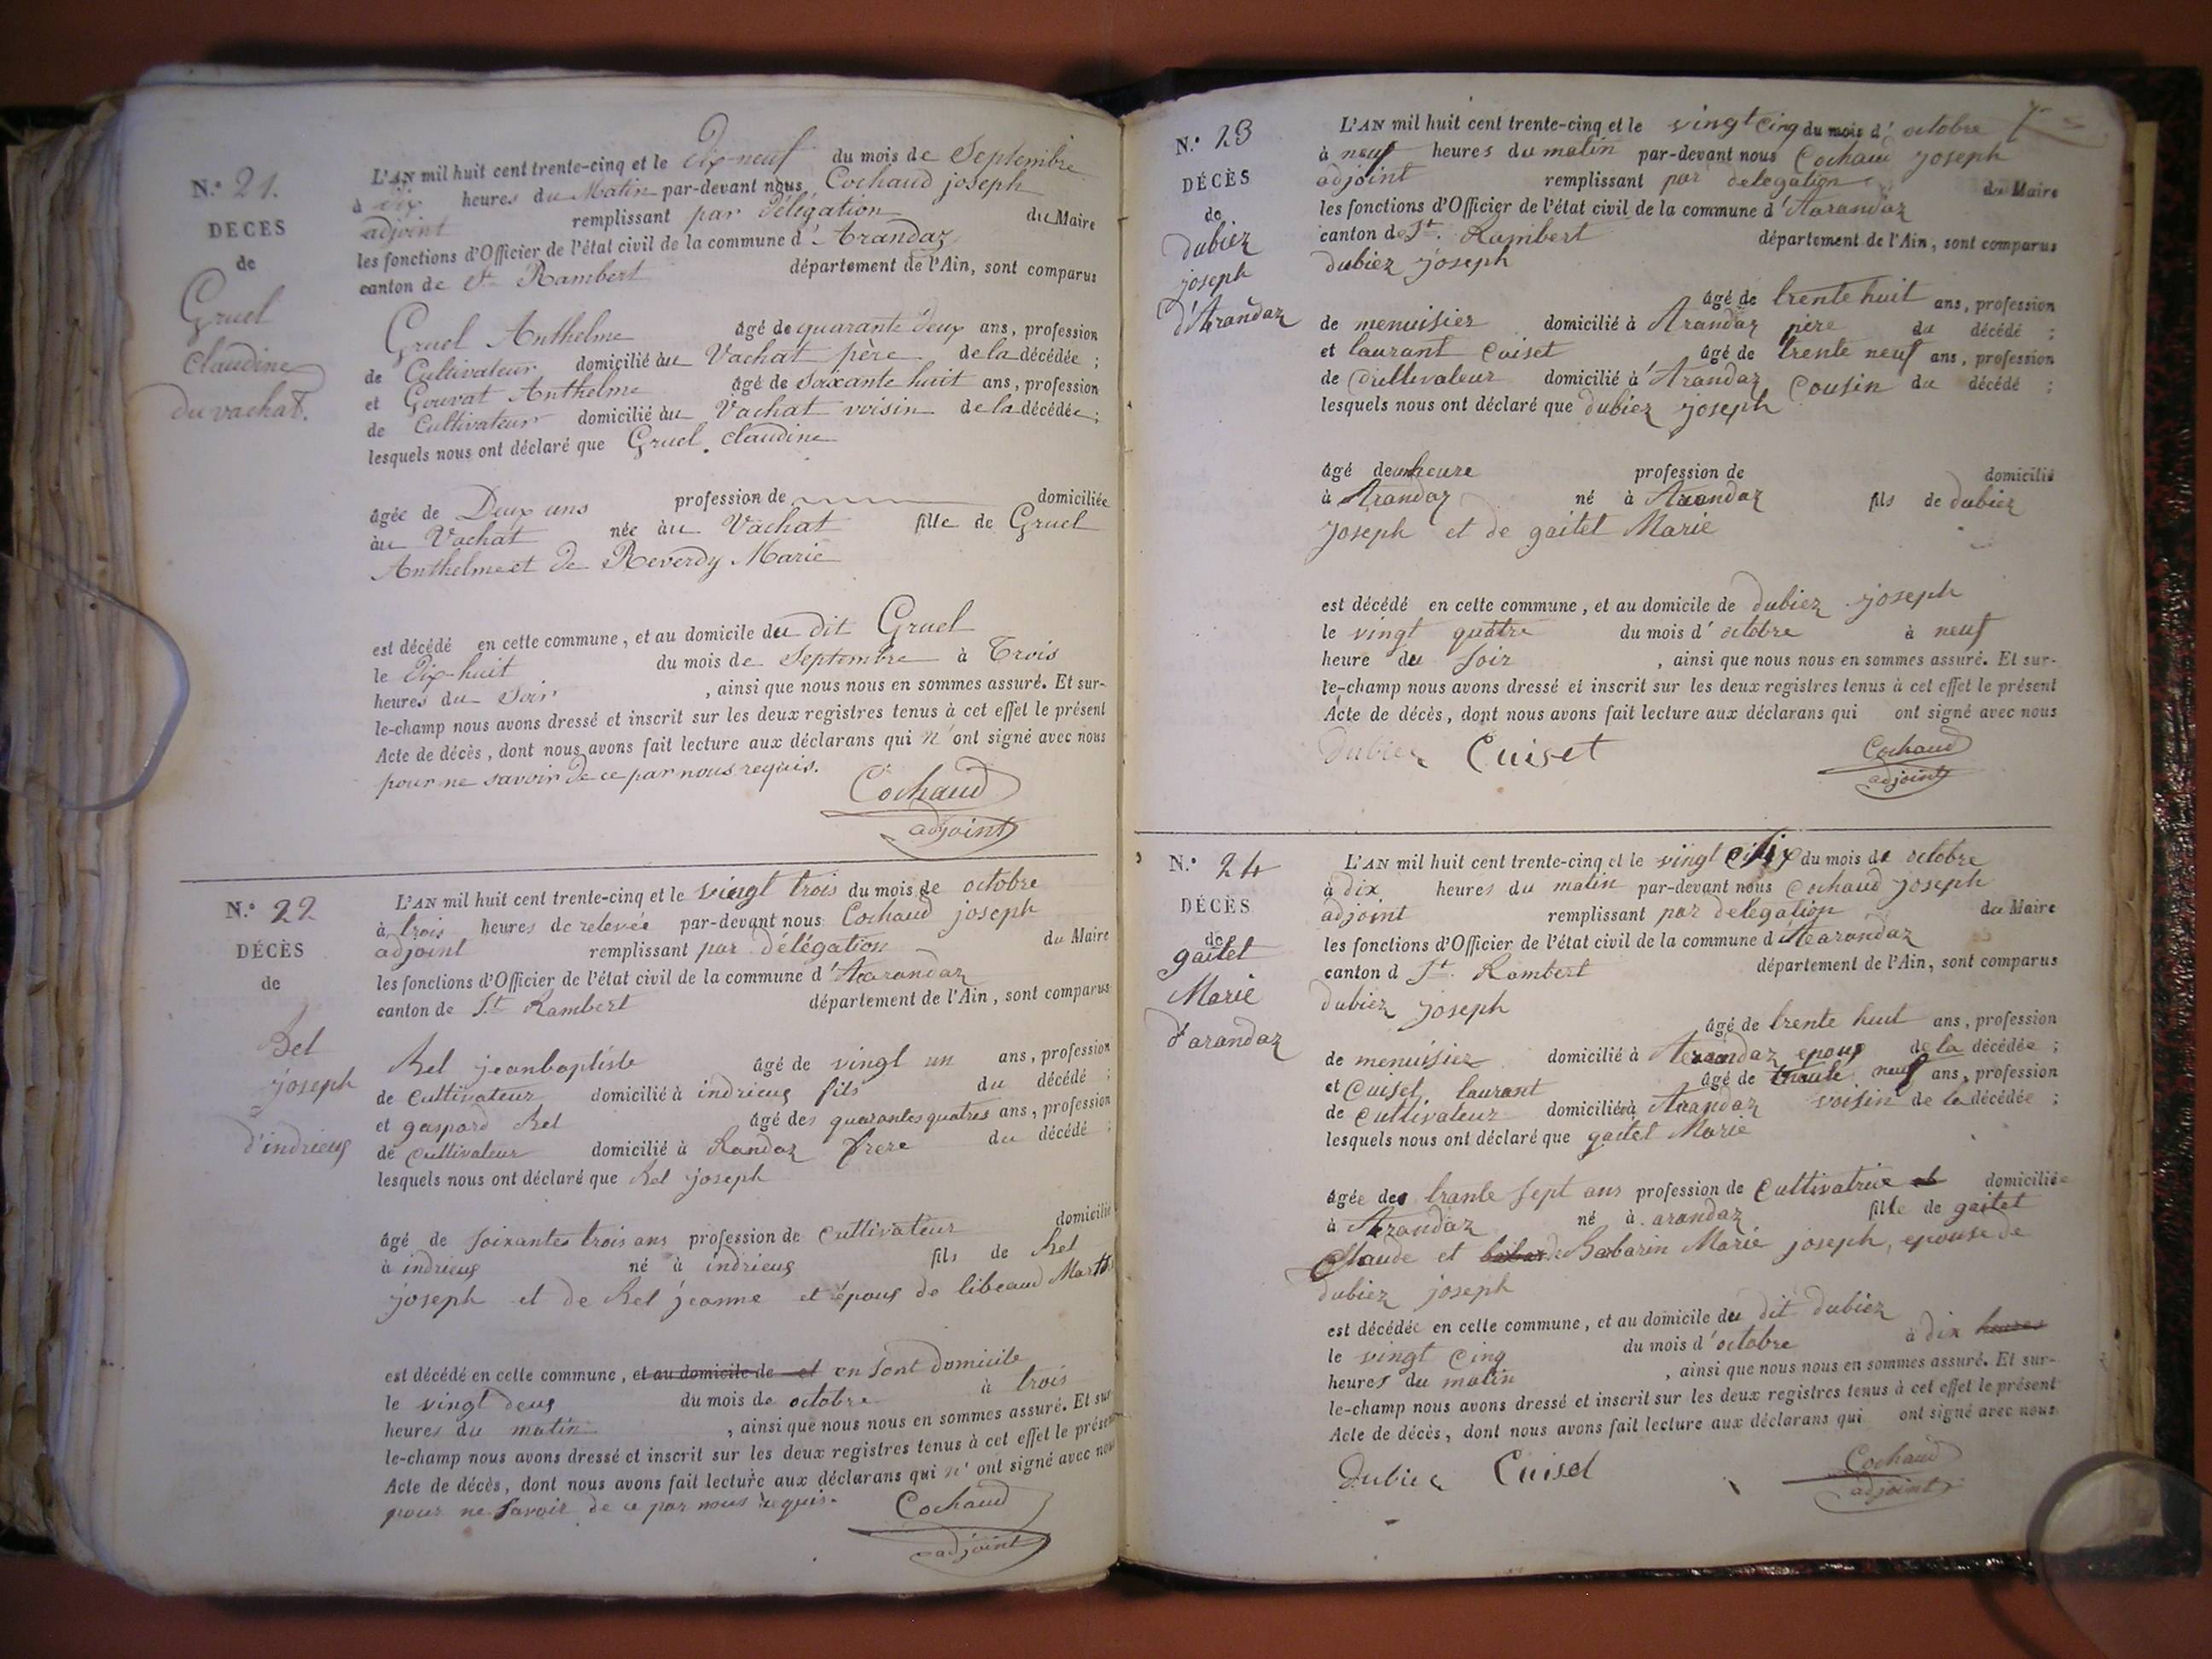 N.° 21.
DÉCÈS
de
Gruel
Claudine
du vachat.
L'AN mil huit cent trente-cinq et le Dix-neuf du mois de Septembre
à dix heures du Matin par-devant nous Cochaud joseph
adjoint remplissant par délégation du Maire
les fonctions d'Officier de l'état civil de la commune d'Arandaz
canton de St Rambert département de l'Ain, sont comparus
Gruel Anthelme âgé de quarante deux ans, profession
de Cultivateur domicilié au Vachat père de la décédée ;
et Gouvat Anthelme âgé de soixante huit ans, profession
de Cultivateur domicilié au Vachat voisin de la décédée ;
lesquels nous ont déclaré que Gruel claudine
âgée de Deux ans profession de domiciliée
au Vachat née au Vachat fille de Gruel
Anthelme et de Reverdy Marie
est décédé en cette commune, et au domicile du dit Gruel
le Dix-huit du mois de Septembre à Trois
heures du Soir , ainsi que nous nous en sommes assuré. Et sur-
le-champ nous avons dressé et inscrit sur les deux registres tenus à cet effet le présent
Acte de décès, dont nous avons fait lecture aux déclarans qui n'ont signé avec nous
pour ne savoir de ce par nous requis.
Cochaud
adjoint
N.° 22
DÉCÈS
de
Bel
joseph
d'indrieux
L'AN mil huit cent trente-cinq et le vingt trois du mois de octobre
à trois heures de relevée par-devant nous Cochaud joseph
adjoint remplissant par délégation du Maire
les fonctions d'Officier de l'état civil de la commune d'Aarandaz
canton de St Rambert département de l'Ain, sont comparus
Bel jeanbaptiste âgé de vingt un ans, profession
de Cultivateur domicilié à indrieux fils du décédé ;
et gaspard Bel âgé des quarantes quatres ans, profession
de cultivateur domicilié à Randaz frere du décédé ;
lesquels nous ont déclaré que Bel joseph
âgé de soixantes trois ans profession de Cultivateur domicilié
à indrieux né à indrieux fils de Bel
joseph et de Bel jeanne et époux de libeaud
est décédé en cette commune, et au domicile de et en sont domicile
le vingt deux du mois de octobre à trois
heures du matin , ainsi que nous nous en sommes assuré. Et sur
le-champ nous avons dressé et inscrit sur les deux registres tenus à cet effet le présen
Acte de décès, dont nous avons fait lecture aux déclarans qui n'ont signé avec nou
pour ne savoir de ce par nous requis.
Cochaud
adjoint
N.° 23
DÉCÈS
de
dubiez
joseph
d'Arandaz
L'AN mil huit cent trente-cinq et le vingt cinq du mois d'octobre
à neuf heures du matin par-devant nous Cochaud joseph
adjoint remplissant par delegation du Maire
les fonctions d'Officier de l'état civil de la commune d'Aarandaz
canton de St. Rambert département de l'Ain, sont comparus
dubiez joseph
âgé de trente huit ans, profession
de menuisier domicilié à Arandaz père du décédé ;
et laurant Cuiset âgé de trente neuf ans, profession
de Cultivateur domicilié à Arandaz Cousin du décédé ;
lesquels nous ont déclaré que dubiez joseph
âgé de unheure profession de domicilié
à Arandaz né à Arandaz fils de dubiez
joseph et de gaitet Marie
est décédé en cette commune, et au domicile de dubiez joseph
le vingt quatre du mois d'octobre à neuf
heure du soir , ainsi que nous nous en sommes assuré. Et sur-
le-champ nous avons dressé et inscrit sur les deux registres tenus à cet effet le présent
Acte de décès, dont nous avons fait lecture aux déclarans qui ont signé avec nous
Dubiez Cuiset
Cochaud
adjoint
N.° 24
DÉCÈS
de
gaitet
Marie
d'arandaz
L'AN mil huit cent trente-cinq et le vingt six du mois de octobre
à dix heures du matin par-devant nous Cochaud joseph
adjoint remplissant par delegation du Maire
les fonctions d'Officier de l'état civil de la commune d'Aarandaz
canton d St. Rambert département de l'Ain, sont comparus
dubiez joseph
âgé de trente huit ans, profession
de menuisier domicilié à Arandaz epoux de la décédée ;
et Cuiset laurant âgé de trente neuf ans, profession
de Cultivateur domicilié à Arandaz voisin de la décédée ;
lesquels nous ont déclaré que gaitet Marie
âgée des trante sept ans profession de Cultivatrice domiciliée
à Arandaz né à arandaz fille de gaitet
Claude et Babarin Marie joseph, epouse de
dubiez joseph
est décédée en cette commune, et au domicile du dit dubiez
le vingt cinq du mois d'octobre à dix heures
heures du matin , ainsi que nous nous en sommes assuré. Et sur-
le-champ nous avons dressé et inscrit sur les deux registres tenus à cet effet le présent
Acte de décès, dont nous avons fait lecture aux déclarans qui ont signé avec nous
Dubiez Cuiset
Cochaud
adjoint